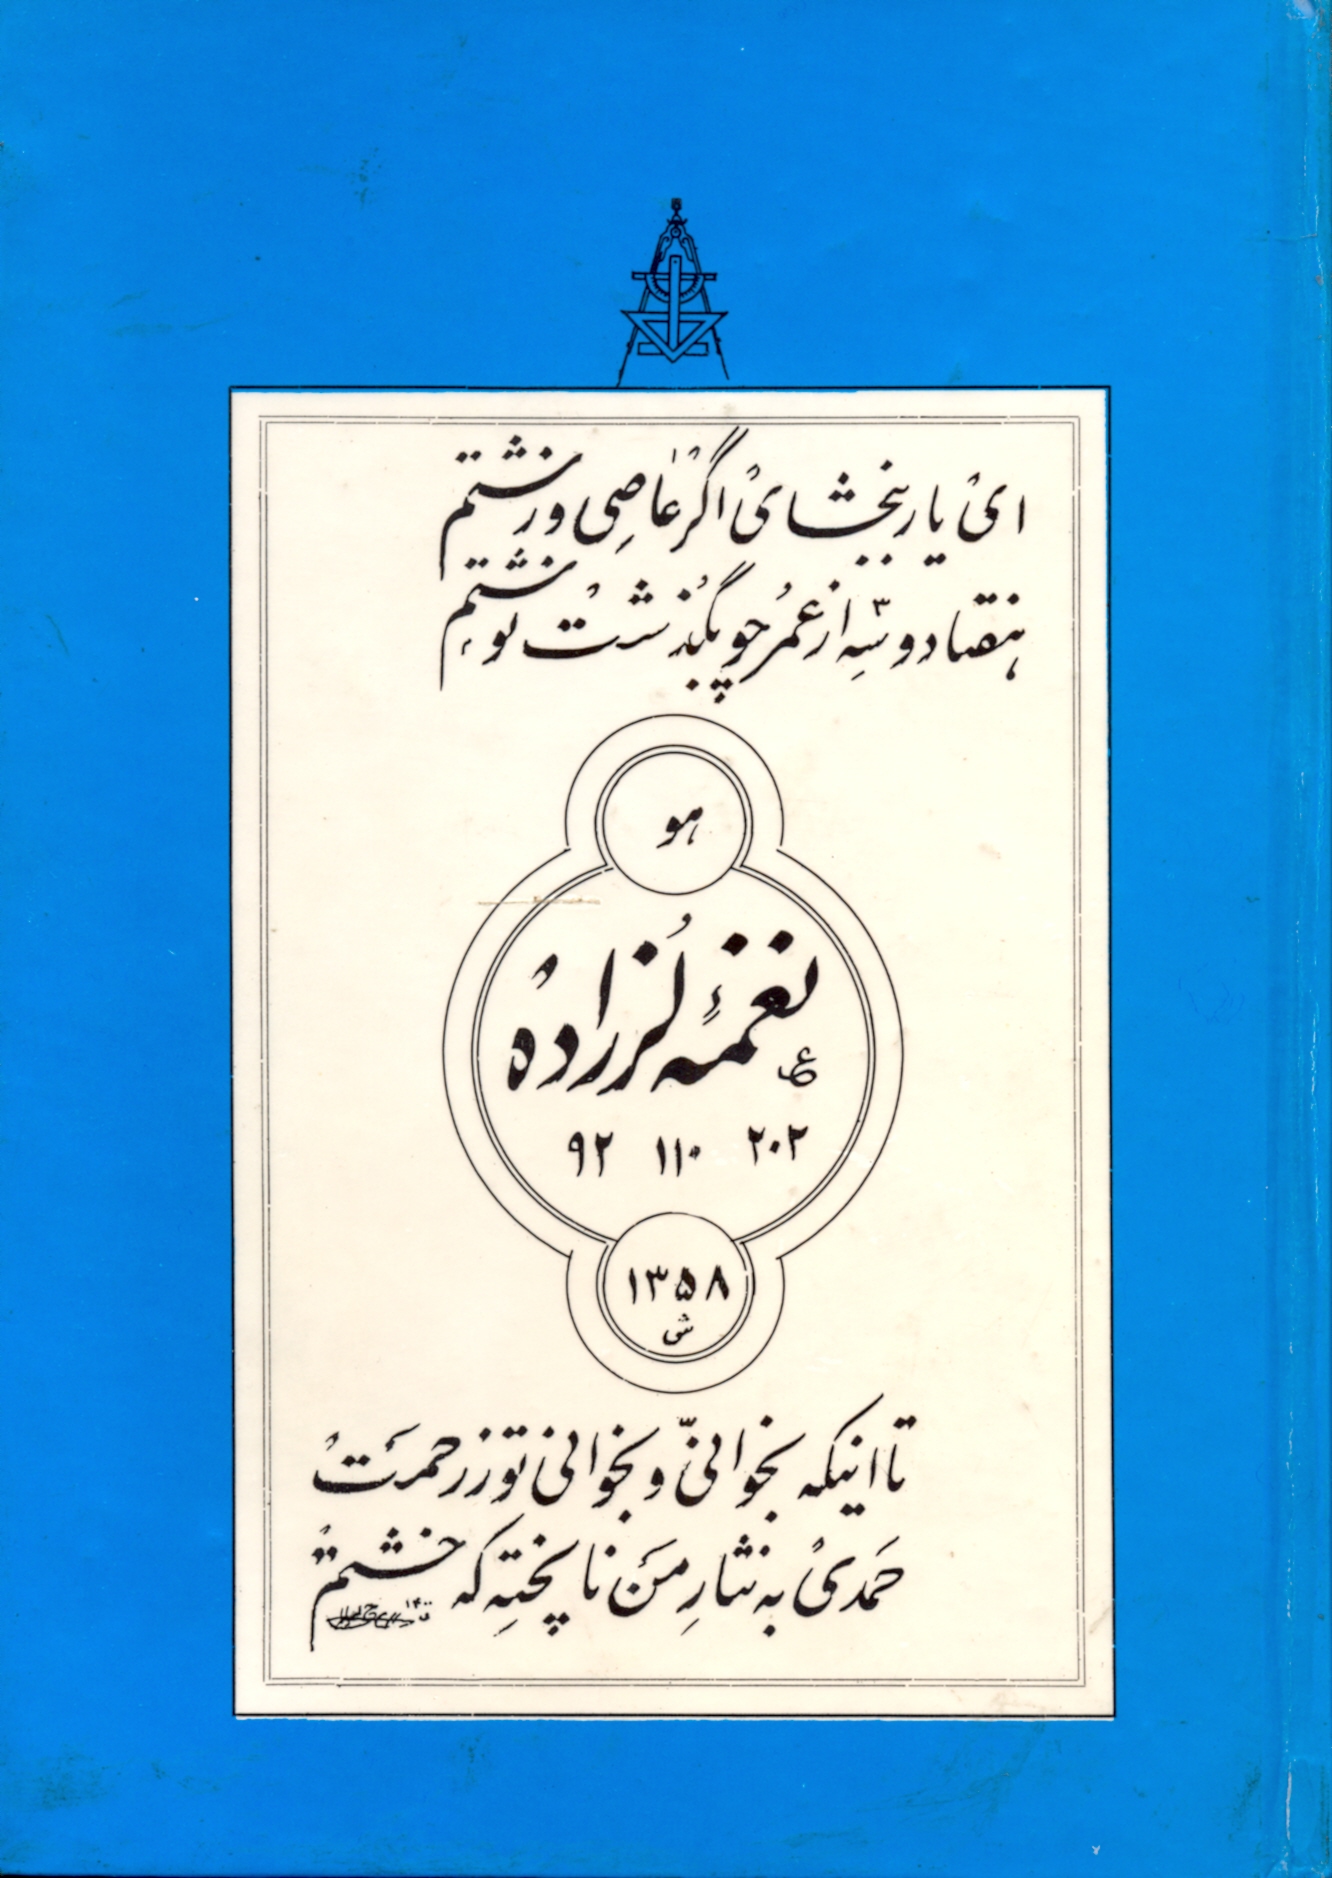 ای یار ببخشای اگر عاصی و زشتم
هفتاد و سه از عمر چو بگذشت نوشتم
هو
نغمهٔ لرزاده
۲۰۲ ۱۱۰ ۹۲
۱۳۵۸
ش
تا اینکه بخوانیّ و بخوانی تو ز رحمت
حمدی به نثار من ناپخته که خشتم